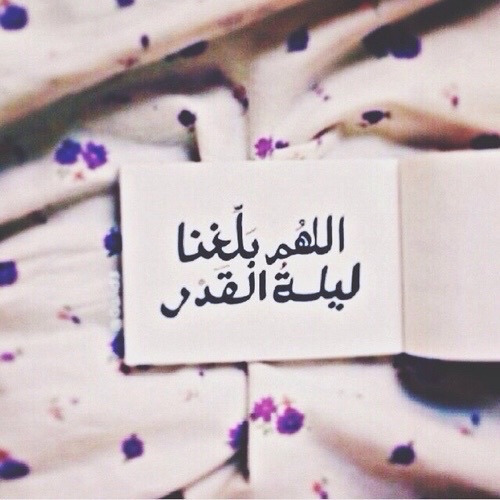 اللهُم بَلّغنا
ليلةُ القَدْر